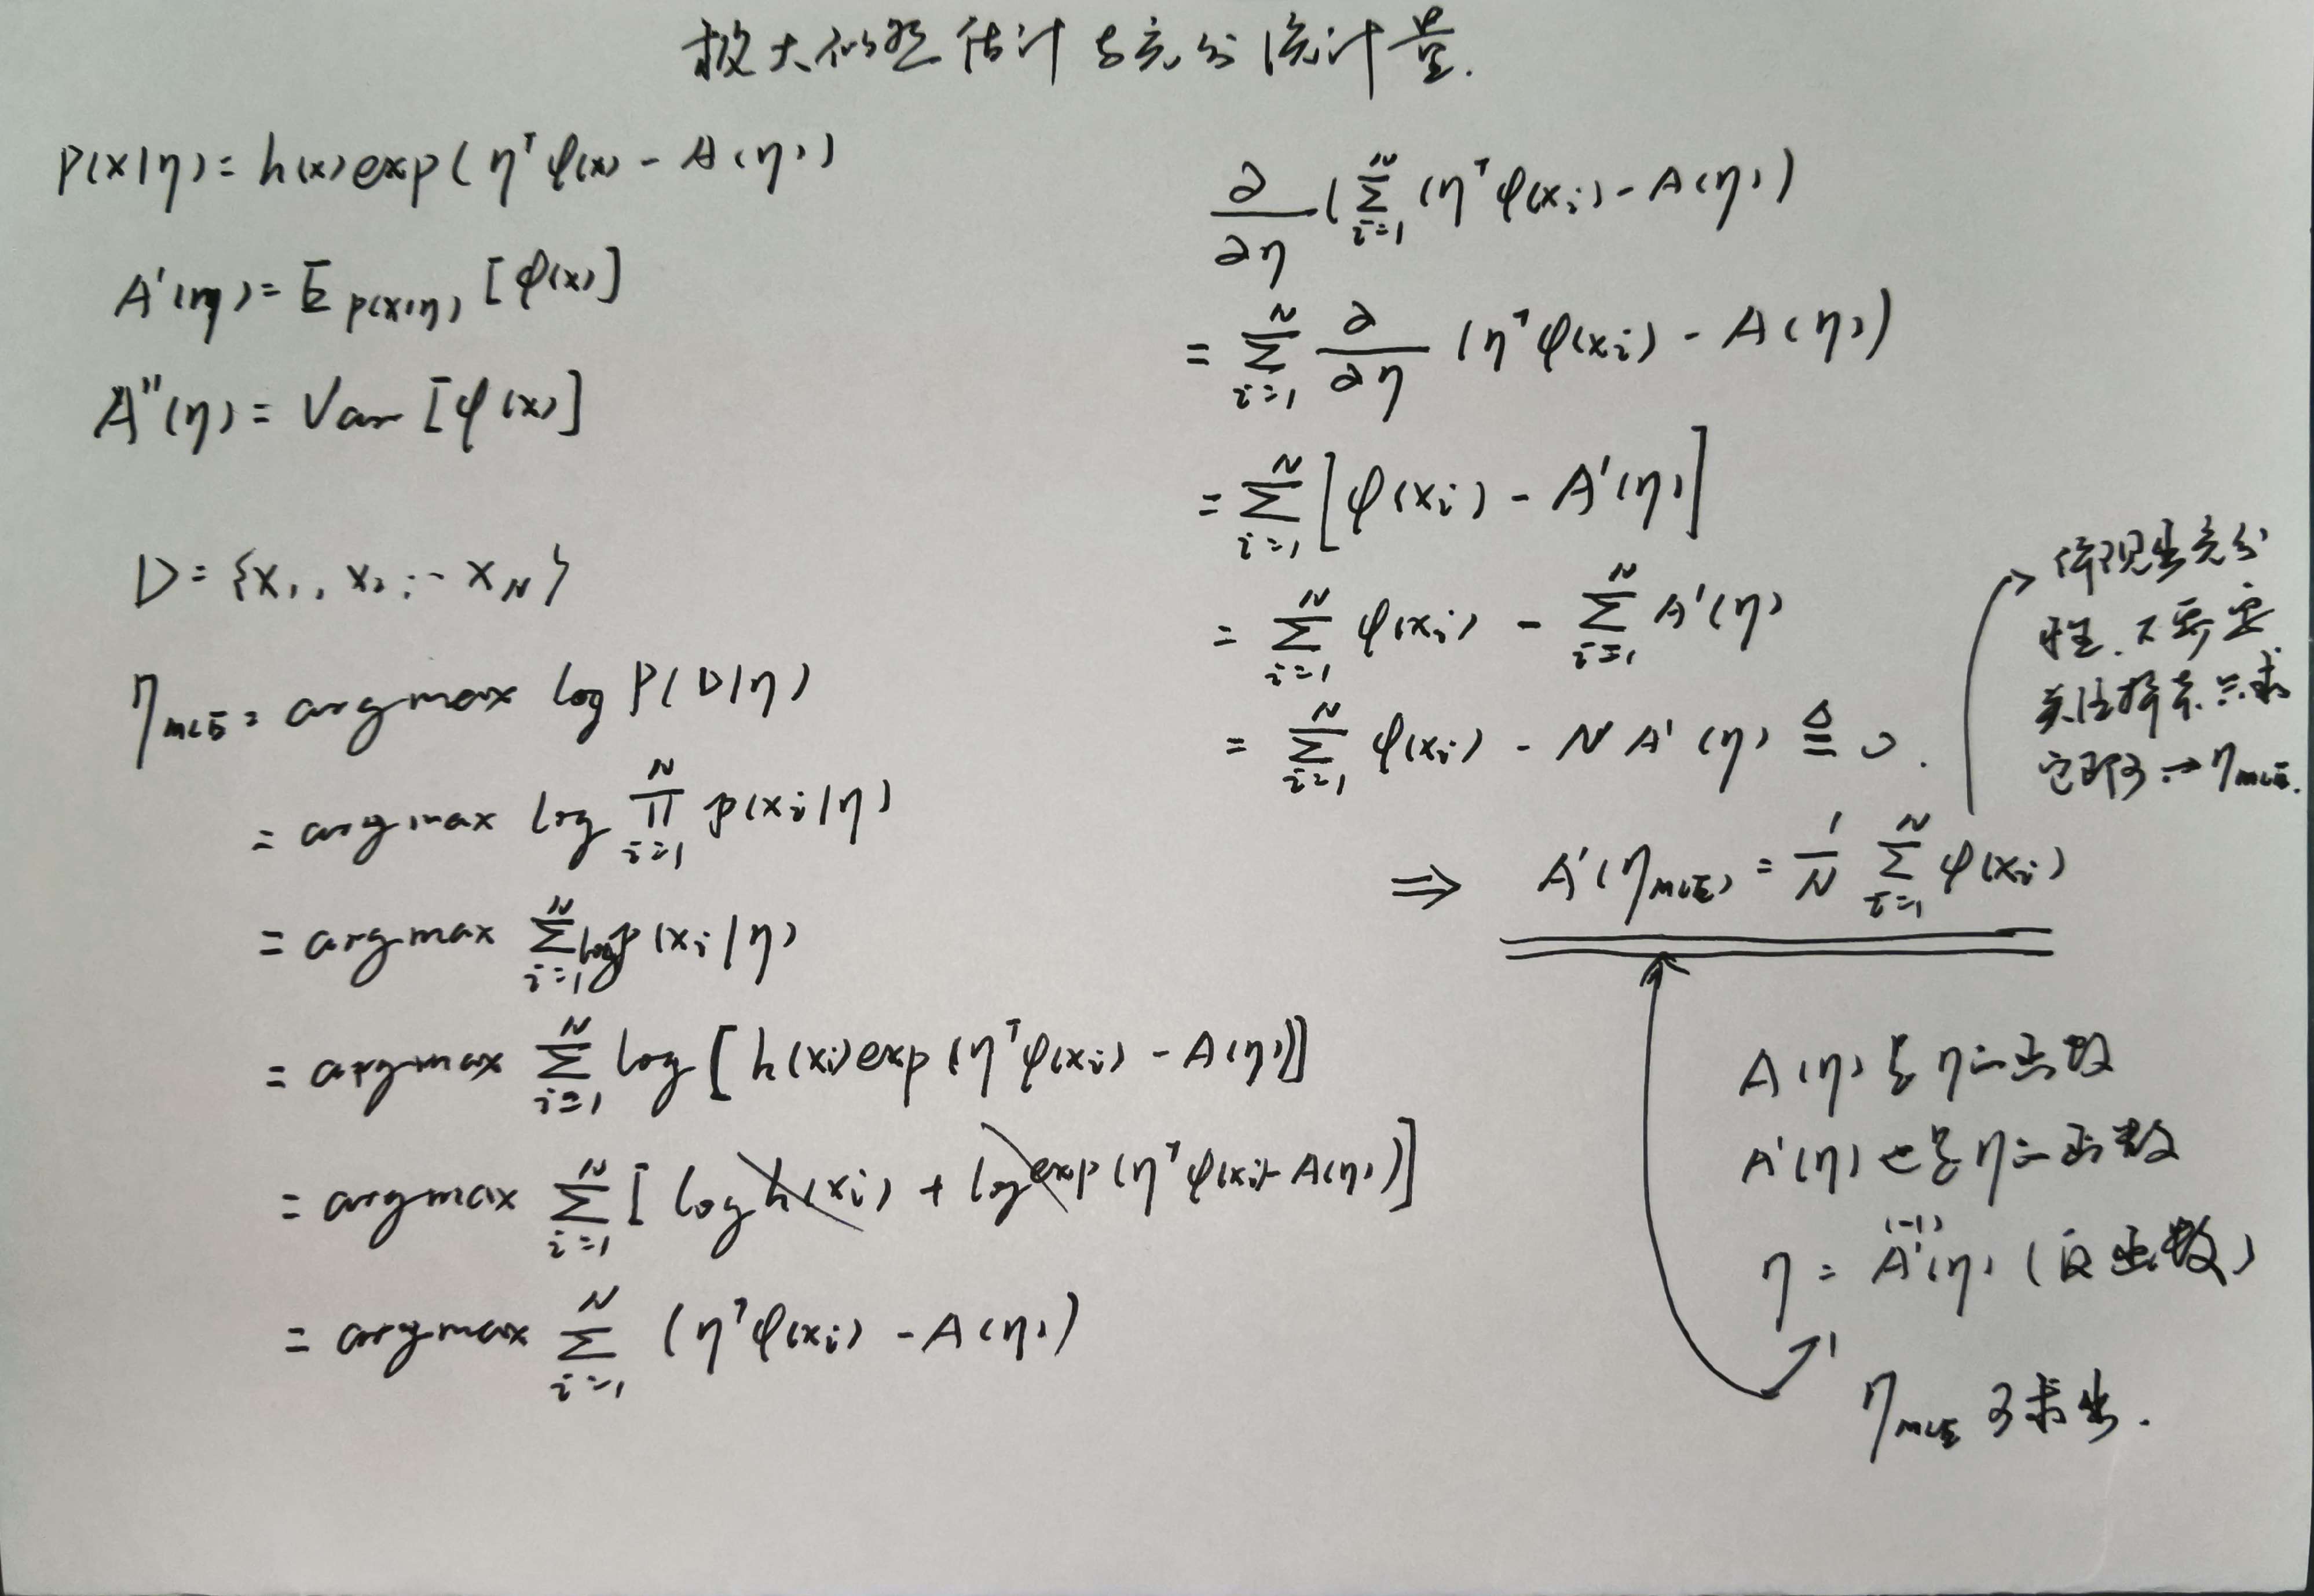 极大似然估计与充分统计量.
P(x|η) = h(x) exp(η^T φ(x) - A(η))
A'(η) = E_{p(x|η)} [φ(x)]
A''(η) = Var [φ(x)]
D = {x₁, x₂, ... x_N}
η_MLE = argmax log P(D|η)
= argmax log ∏_{i=1}^{N} p(x_i|η)
= argmax ∑_{i=1}^{N} log p(x_i|η)
= argmax ∑_{i=1}^{N} log [h(x_i) exp(η^T φ(x_i) - A(η))]
= argmax ∑_{i=1}^{N} [log h(x_i) + log exp(η^T φ(x_i) - A(η))]
= argmax ∑_{i=1}^{N} (η^T φ(x_i) - A(η))
∂/∂η (∑_{i=1}^{N} (η^T φ(x_i) - A(η))
= ∑_{i=1}^{N} ∂/∂η (η^T φ(x_i) - A(η))
= ∑_{i=1}^{N} [φ(x_i) - A'(η)]
= ∑_{i=1}^{N} φ(x_i) - ∑_{i=1}^{N} A'(η)
= ∑_{i=1}^{N} φ(x_i) - N A'(η) ≜ 0.
⇒ A'(η_MLE) = 1/N ∑_{i=1}^{N} φ(x_i)
体现出充分
性. 不需要
关注样本 只求
它即可 → η_MLE.
A(η) 是 η 的函数
A'(η) 也是 η 的函数
η = A'^{(-1)}(η) (反函数)
η_MLE 可求出.